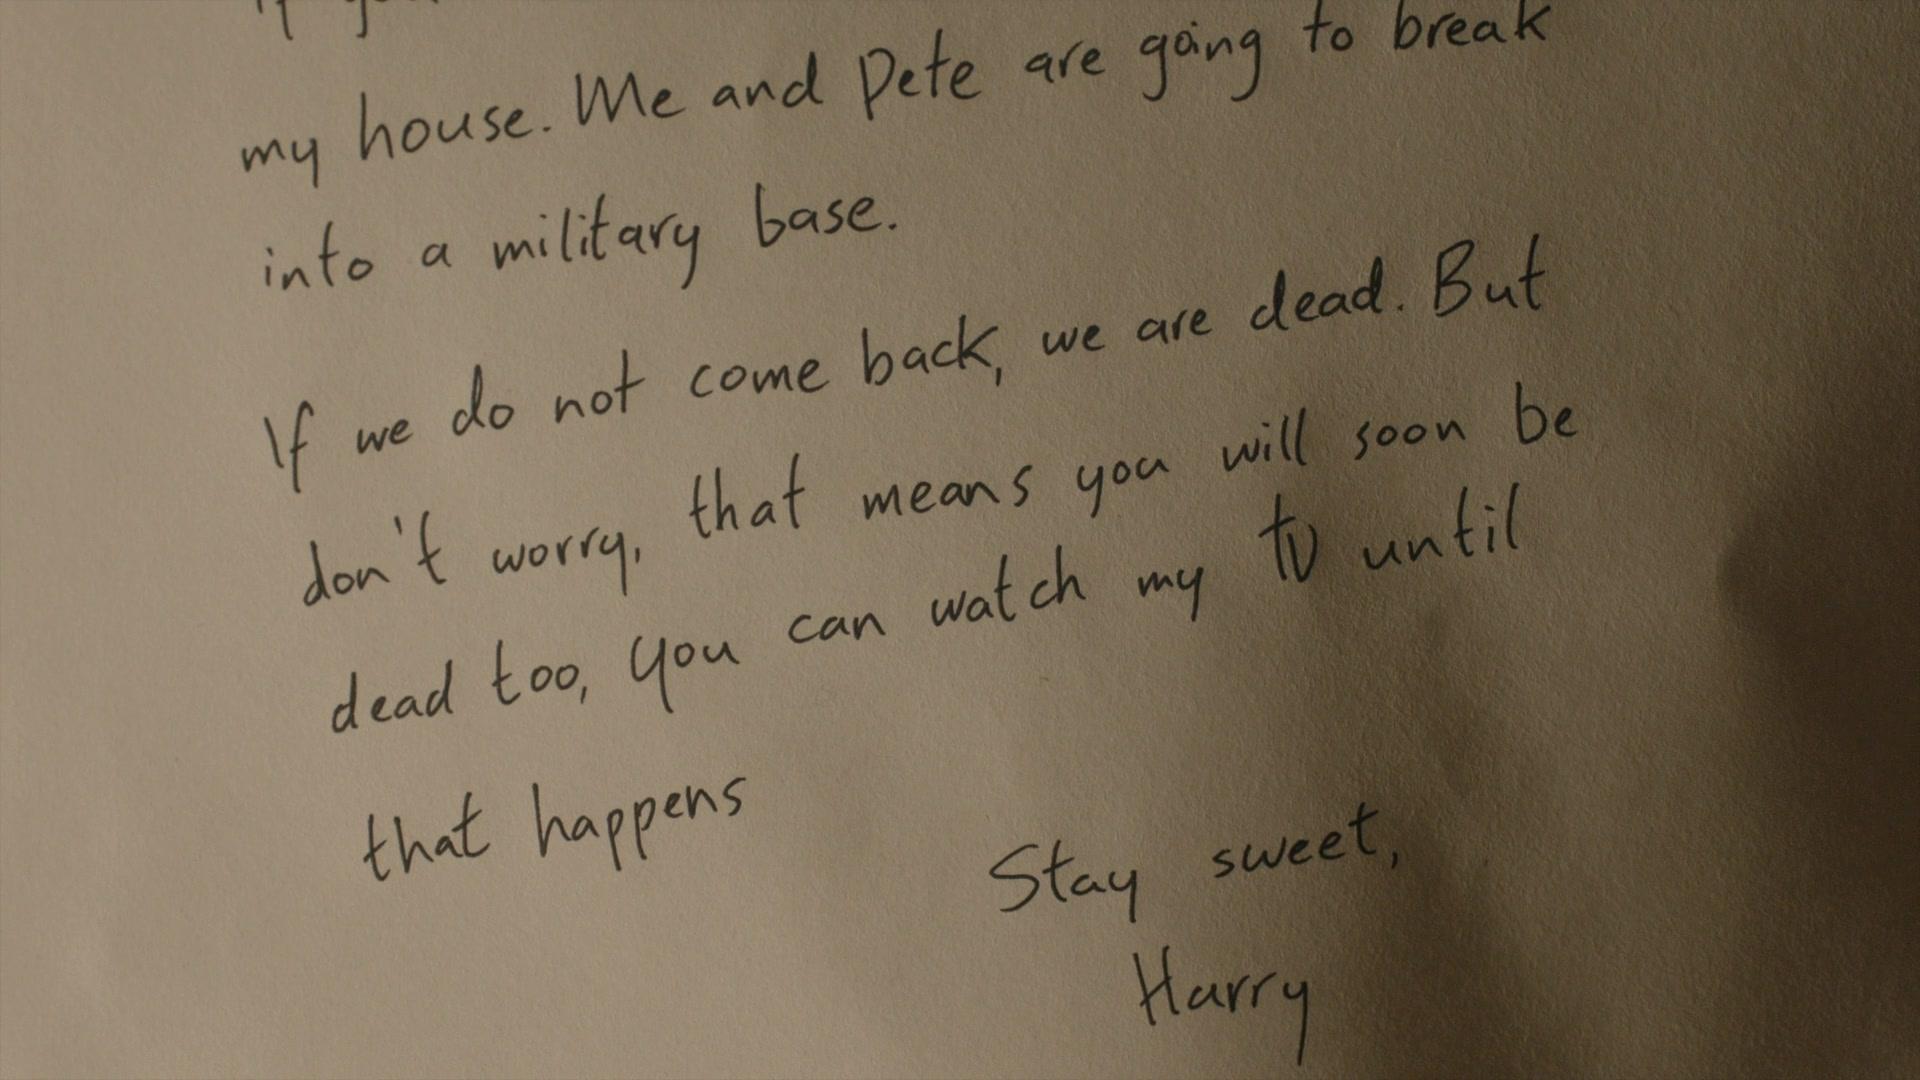 my house. Me and Pete are going to break
into a military base.
If we do not come back, we are dead. But
don't worry, that means you will soon be
dead too, you can watch my tv until
that happens
Stay sweet,
Harry